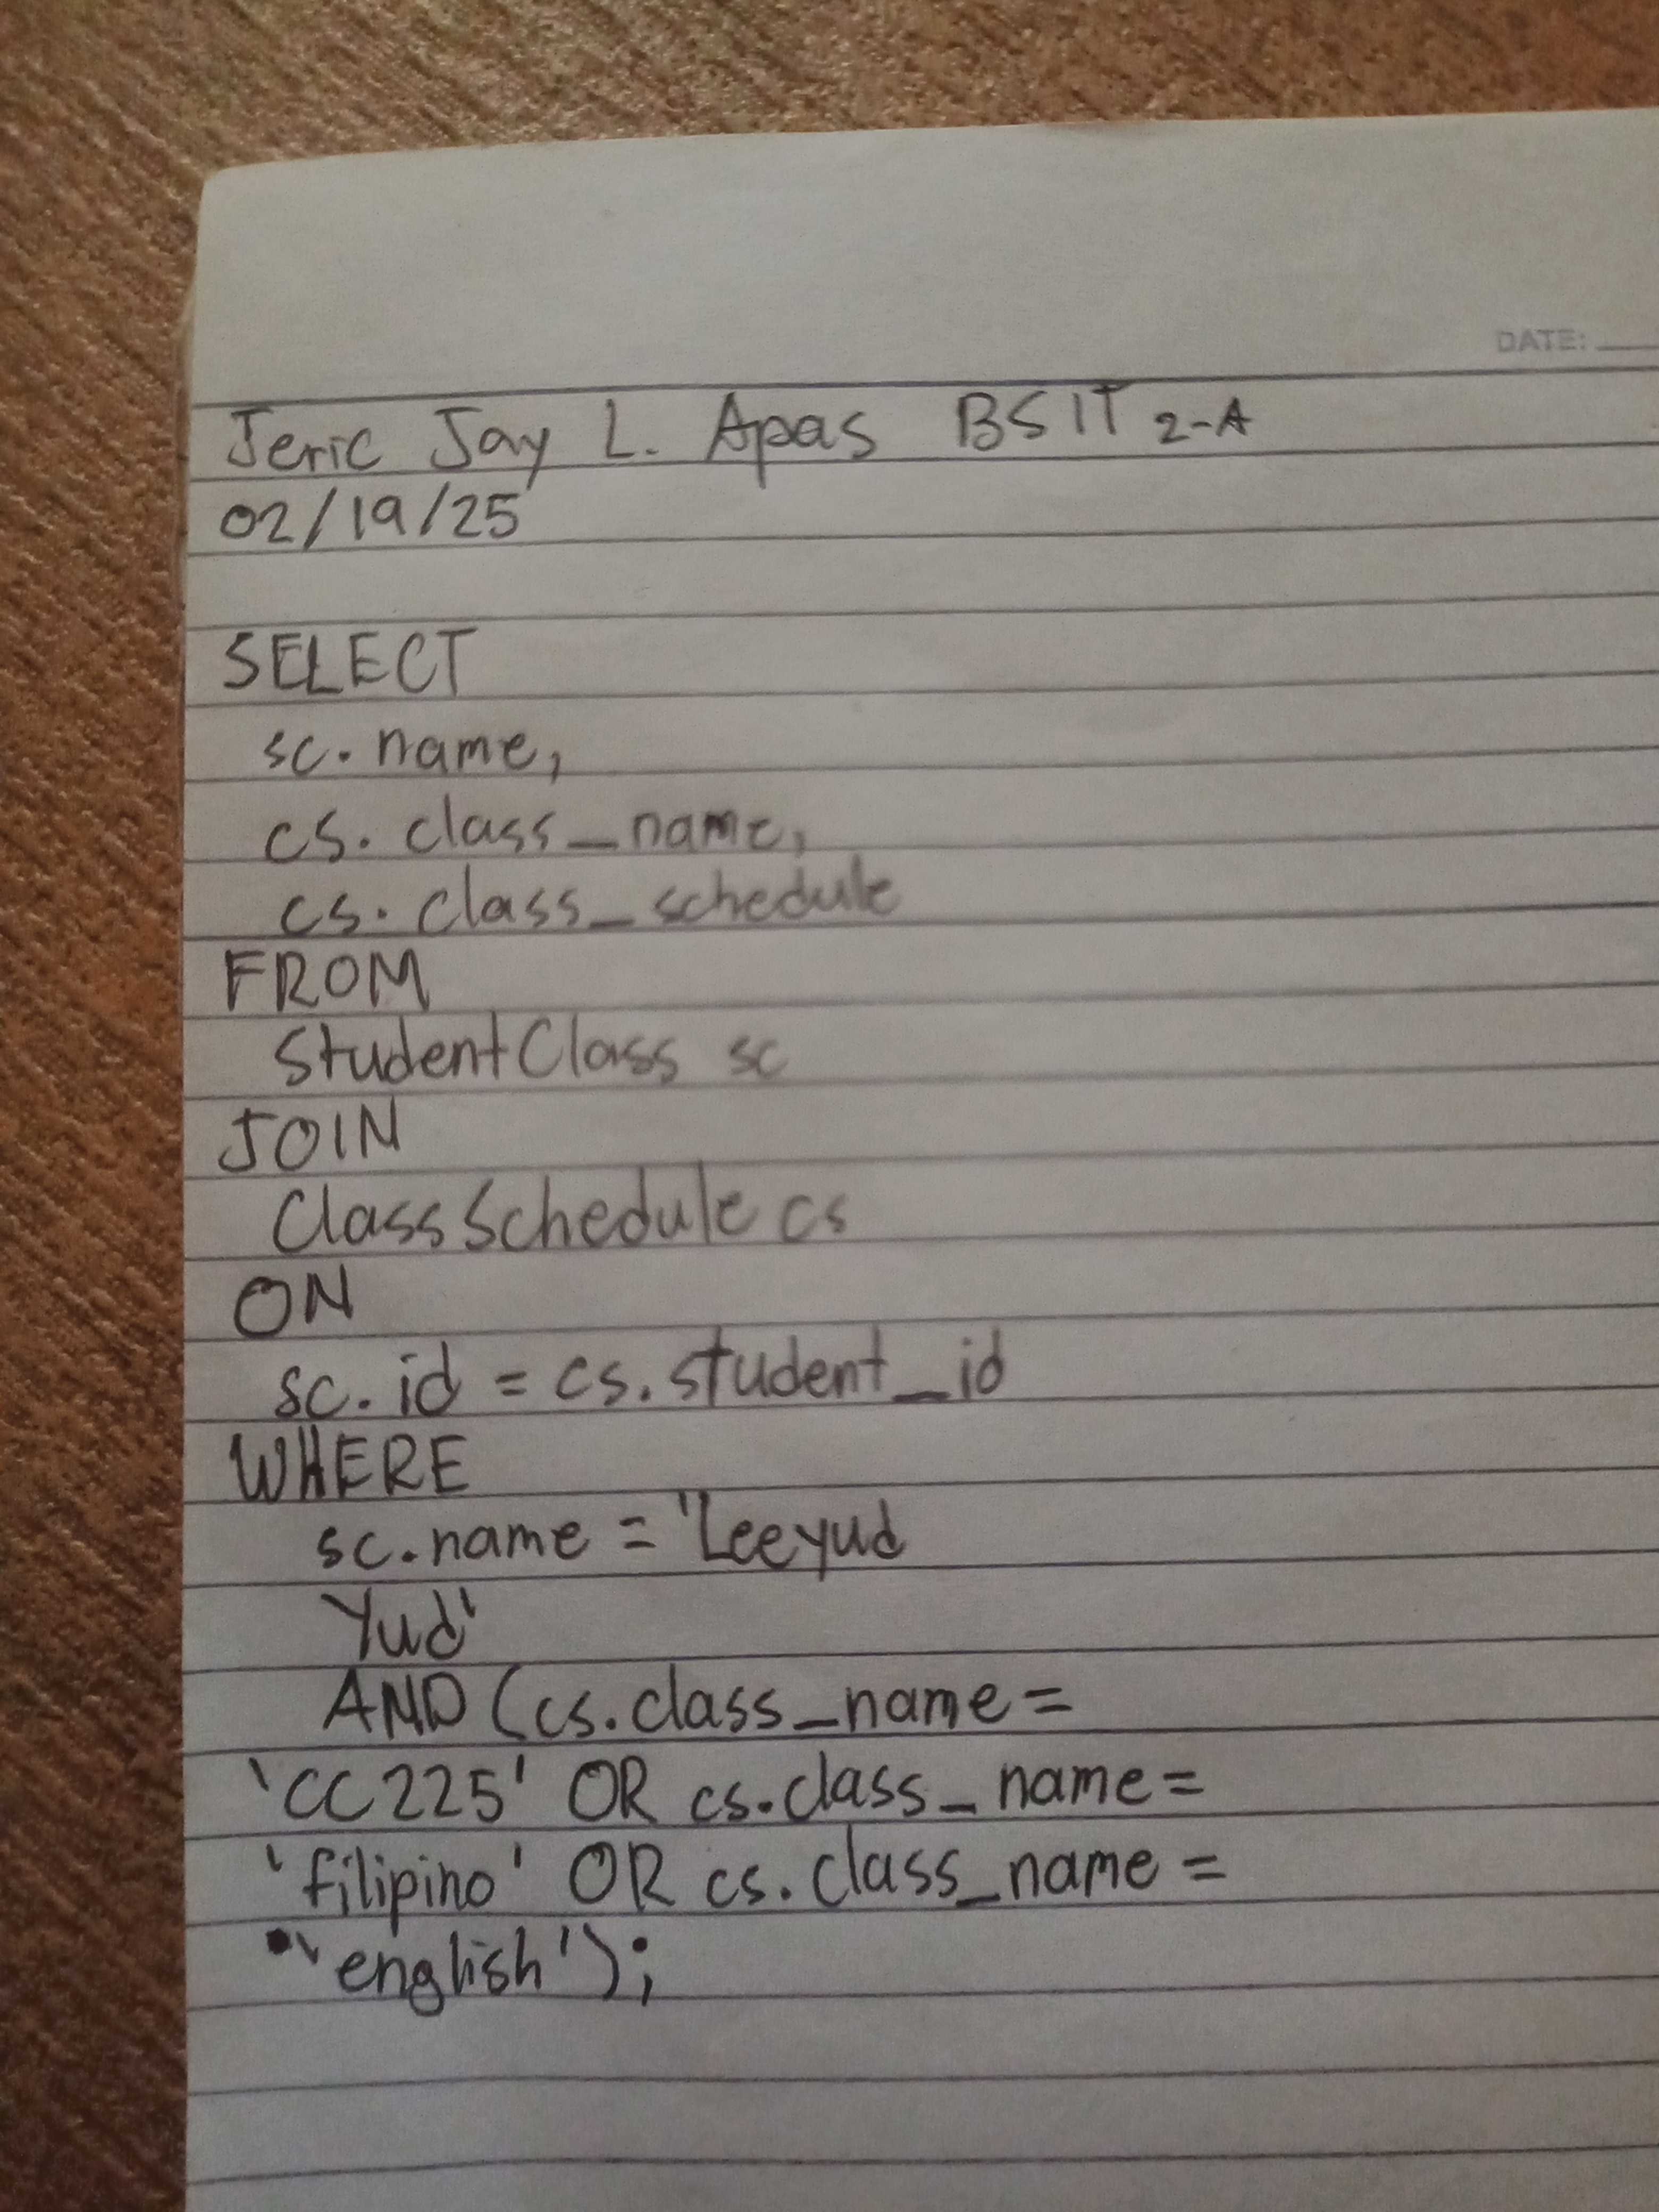 DATE:
Jeric Jay L. Apas BSIT 2-A
02/19/25
SELECT
sc.name,
cs.class_name,
cs.class_schedule
FROM
StudentClass sc
JOIN
ClassSchedule cs
ON
sc.id = cs.student_id
WHERE
sc.name = 'Leeyud
Yud'
AND (cs.class_name =
'CC225' OR cs.class_name =
'filipino' OR cs.class_name =
'english');